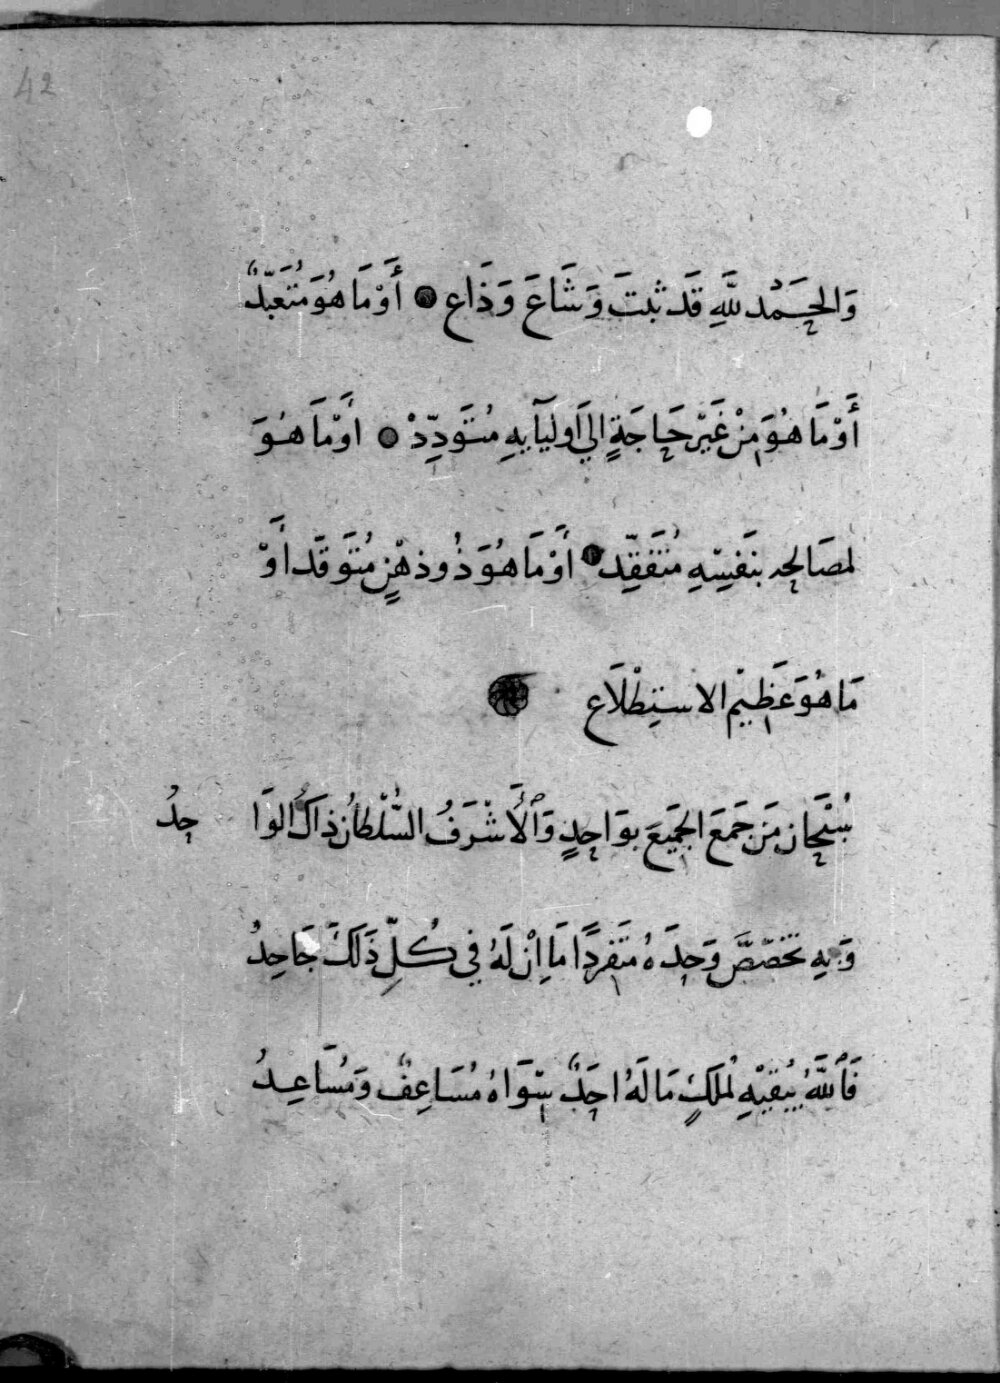 42
وَالحَمْد لِلَّهِ قَد ثبتَ وَشَاعَ وَذَاع ● أَوْ مَا هُوَ مُتَعَبّدٌ
أَوْ مَا هُوَ مِنْ غَيْر حَاجَةٍ الي اوليآيهِ مُتَوَدِّدْ ● اَوْ مَا هُوَ
لمصَالحه بنَفسِهِ مُتَفَقِّد ● أَوْ مَا هُوَ ذُو ذهْنٍ مُتَوقّد أَوْ
مَا هُوَ عَظِيْم الاستِطْلَاع
سُبْحَان مَن جَمَعَ الجَمِيعَ بوَاحِدٍ وَالْأَشْرَفُ السُّلْطَانُ ذَاكَ الوَاحِدُ
وَبهِ تخصّصَّ وَحدَهُ مُتَفردًا مَا اِنْ لَهُ في كُلِّ ذَلكَ جَاحِدُ
فَاللَّهُ يُبقيْهِ لمُلكٍ مَا لَهُ احَدٌ سِوَاهُ مُسَاعِفٌ وَمُسَاعِدُ